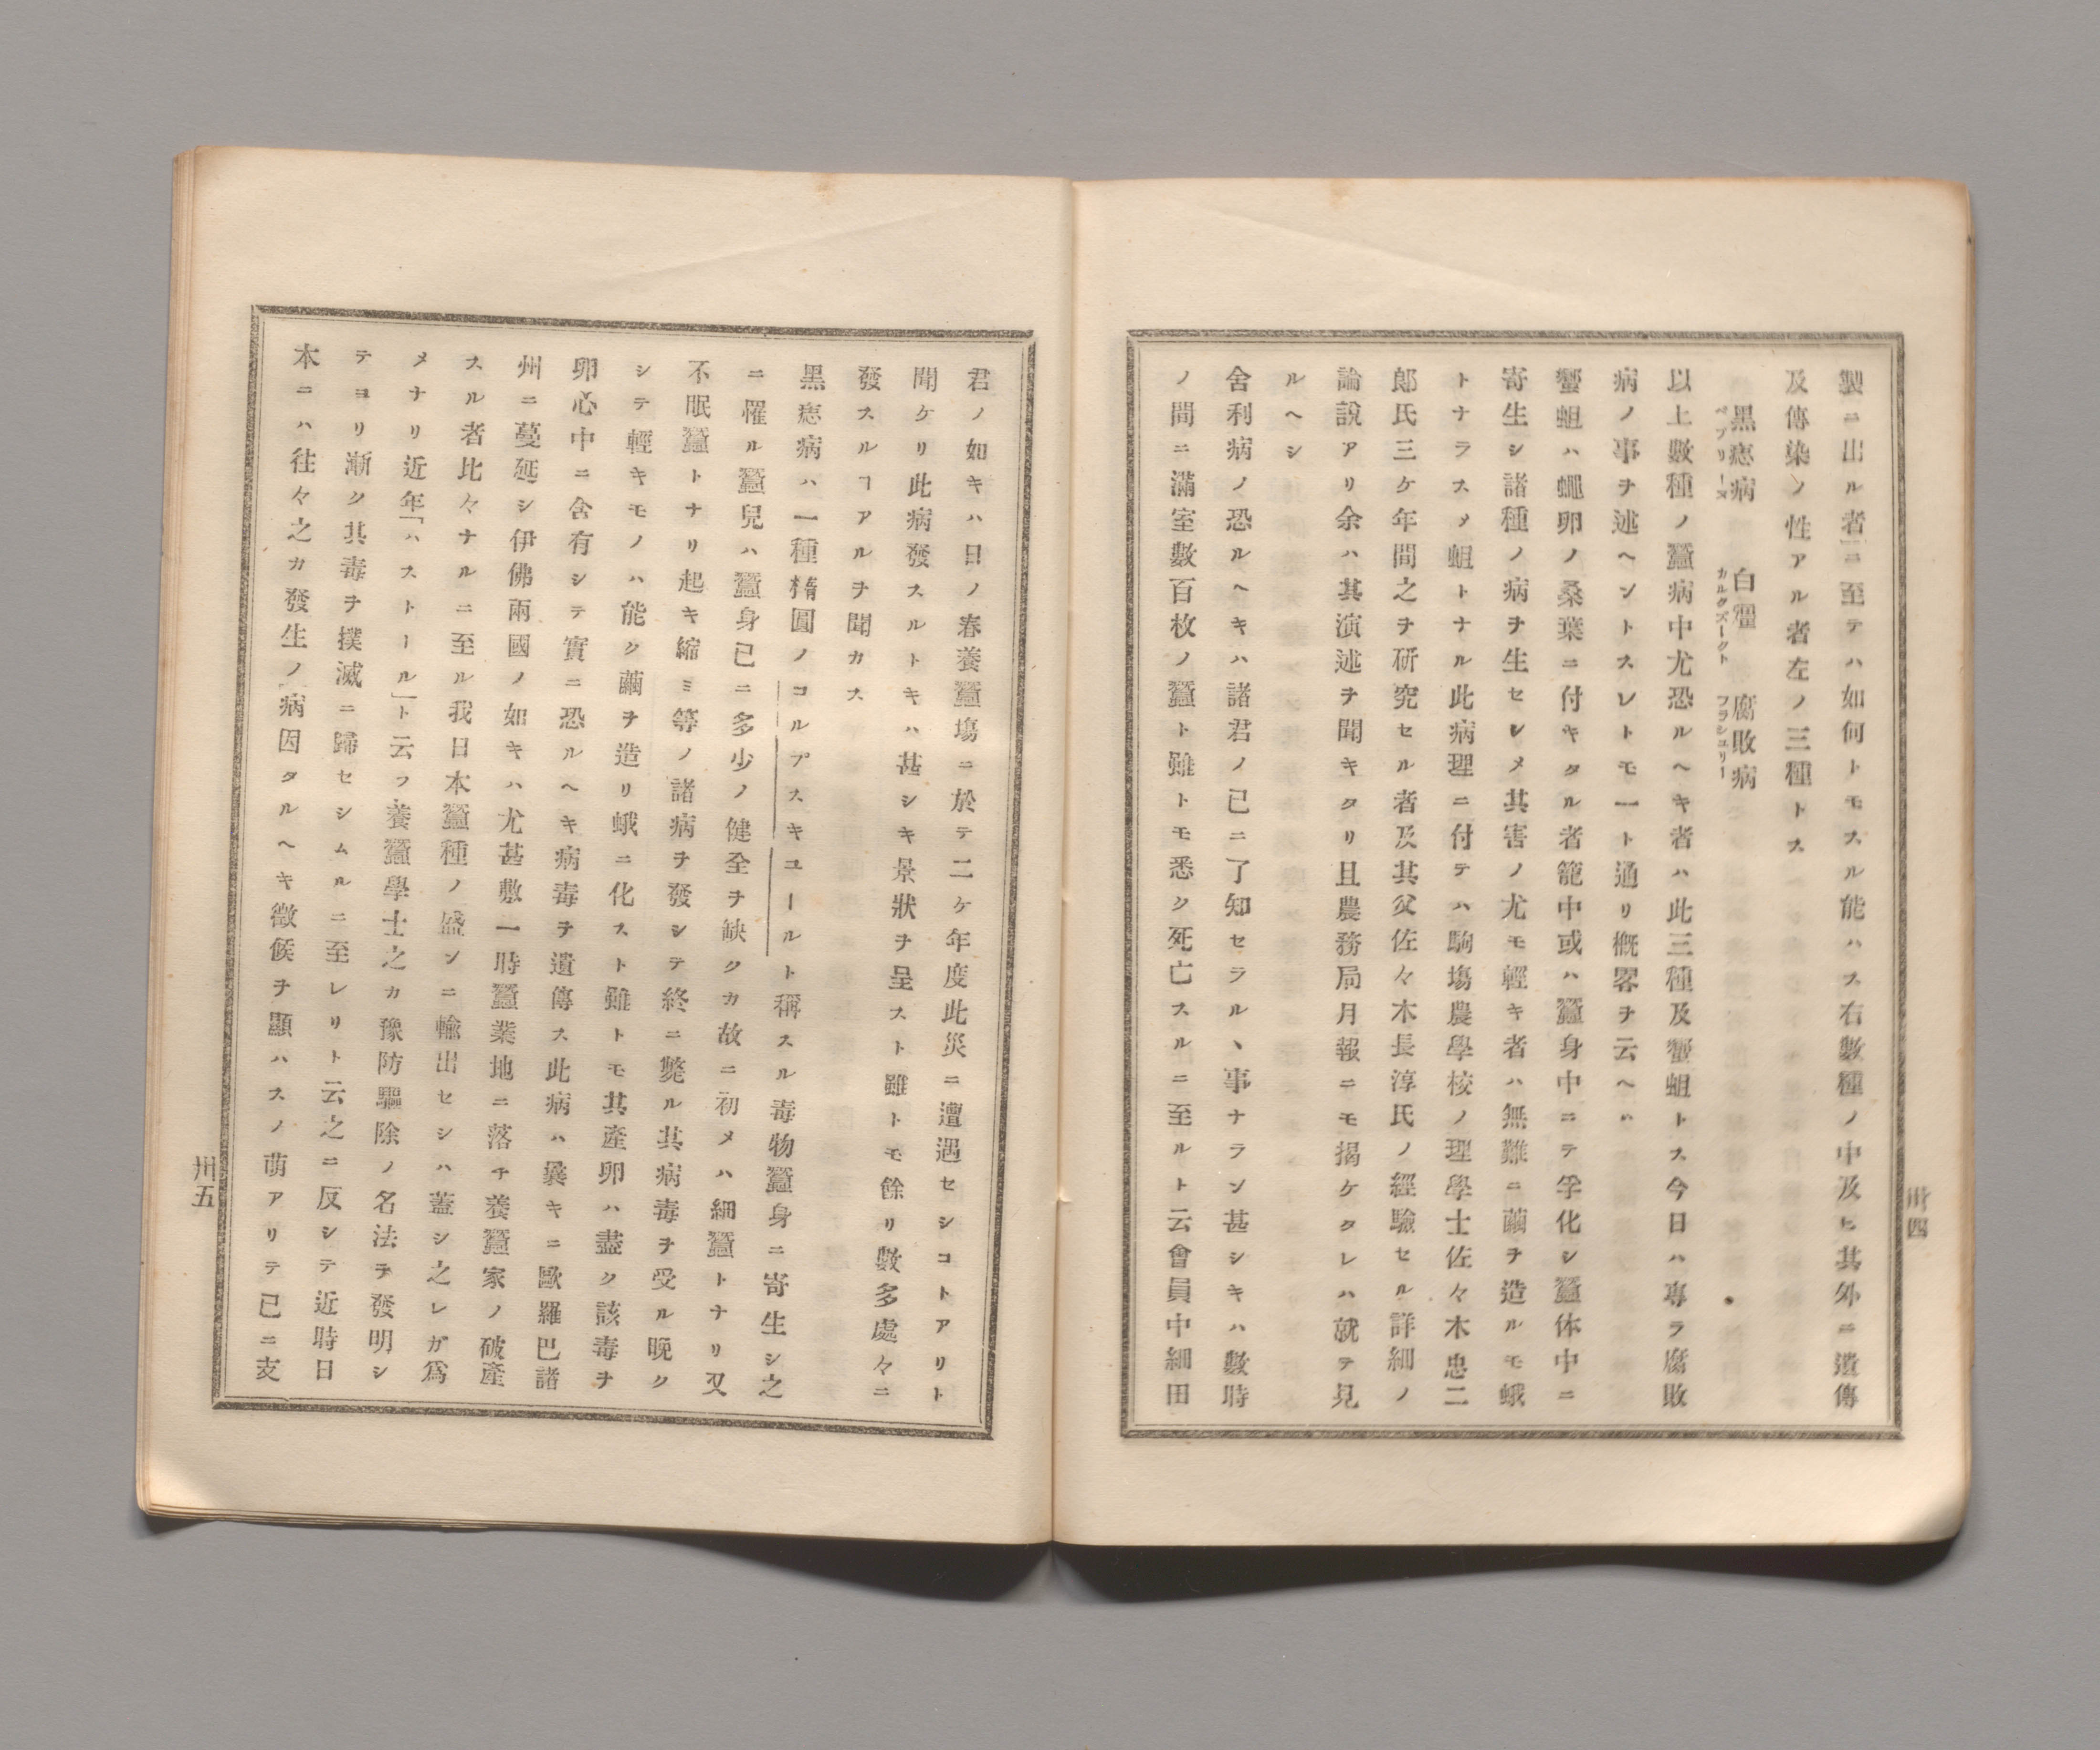 製ニ出ル者ニ至テハ如何トモスル能ハス右數種ノ中及ヒ其外ニ遺傳
及傳染ノ性アル者左ノ三種トス
黒痣病 白殭 腐敗病
ペブリーヌ カルクズークト フラシユリー
以上數種ノ蠶病中尤恐ルヘキ者ハ此三種及蠁蛆トス今日ハ専ラ腐敗
病ノ事ヲ述ヘントスレトモ一ト通リ概畧ヲ云ヘハ
蠁蛆ハ蠅卵ノ桑葉ニ付キタル者籠中或ハ蠶身中ニテ孚化シ蠶体中ニ
寄生シ諸種ノ病ヲ生セレメ其害ノ尤モ輕キ者ハ無難ニ繭ヲ造ルモ蛾
トナラスメ蛆トナル此病理ニ付テハ駒塲農學校ノ理學士佐々木忠二
郎氏三ケ年間之ヲ研究セル者及其父佐々木長淳氏ノ經驗セル詳細ノ
論說アリ余ハ其演述ヲ聞キタリ且農務局月報ニモ揭ケタレハ就テ見
ルヘシ
舍利病ノ恐ルヘキハ諸君ノ已ニ了知セラルヽ事ナラン甚シキハ數時
ノ間ニ滿室數百枚ノ蠶ト雖トモ悉ク死亡スルニ至ルト云會員中細田
卅四
君ノ如キハ日ノ春養蠶塲ニ於テ二ケ年度此災ニ遭遇セシコトアリト
聞ケリ此病發スルトキハ甚シキ景狀ヲ呈スト雖トモ餘リ數多處々ニ
發スルヿアルヲ聞カス
黒痣病ハ一種橢圓ノコルプスキユールト稱スル毒物蠶身ニ寄生シ之
ニ罹ル蠶兒ハ蠶身已ニ多少ノ健全ヲ缺クカ故ニ初メハ細蠶トナリ又
不眠蠶トナリ起キ縮ミ等ノ諸病ヲ發シテ終ニ斃ル其病毒ヲ受ル晩ク
シテ輕キモノハ能ク繭ヲ造リ蛾ニ化スト雖トモ其產卵ハ盡ク該毒ヲ
卵心中ニ含有シテ實ニ恐ルヘキ病毒ヲ遺傳ス此病ハ曩キニ歐羅巴諸
州ニ蔓延シ伊佛兩國ノ如キハ尤甚敷一時蠶業地ニ落チ養蠶家ノ破產
スル者比々ナルニ至ル我日本蠶種ノ盛ンニ輸出セシハ蓋シ之レガ爲
メナリ近年「ハストール」ト云フ養蠶學士之カ豫防驅除ノ名法ヲ發明シ
テヨリ漸ク其毒ヲ撲滅ニ歸セシムルニ至レリト云之ニ反シテ近時日
本ニハ往々之カ發生ノ病因タルヘキ徵候ヲ顯ハスノ萠アリテ已ニ支
卅五